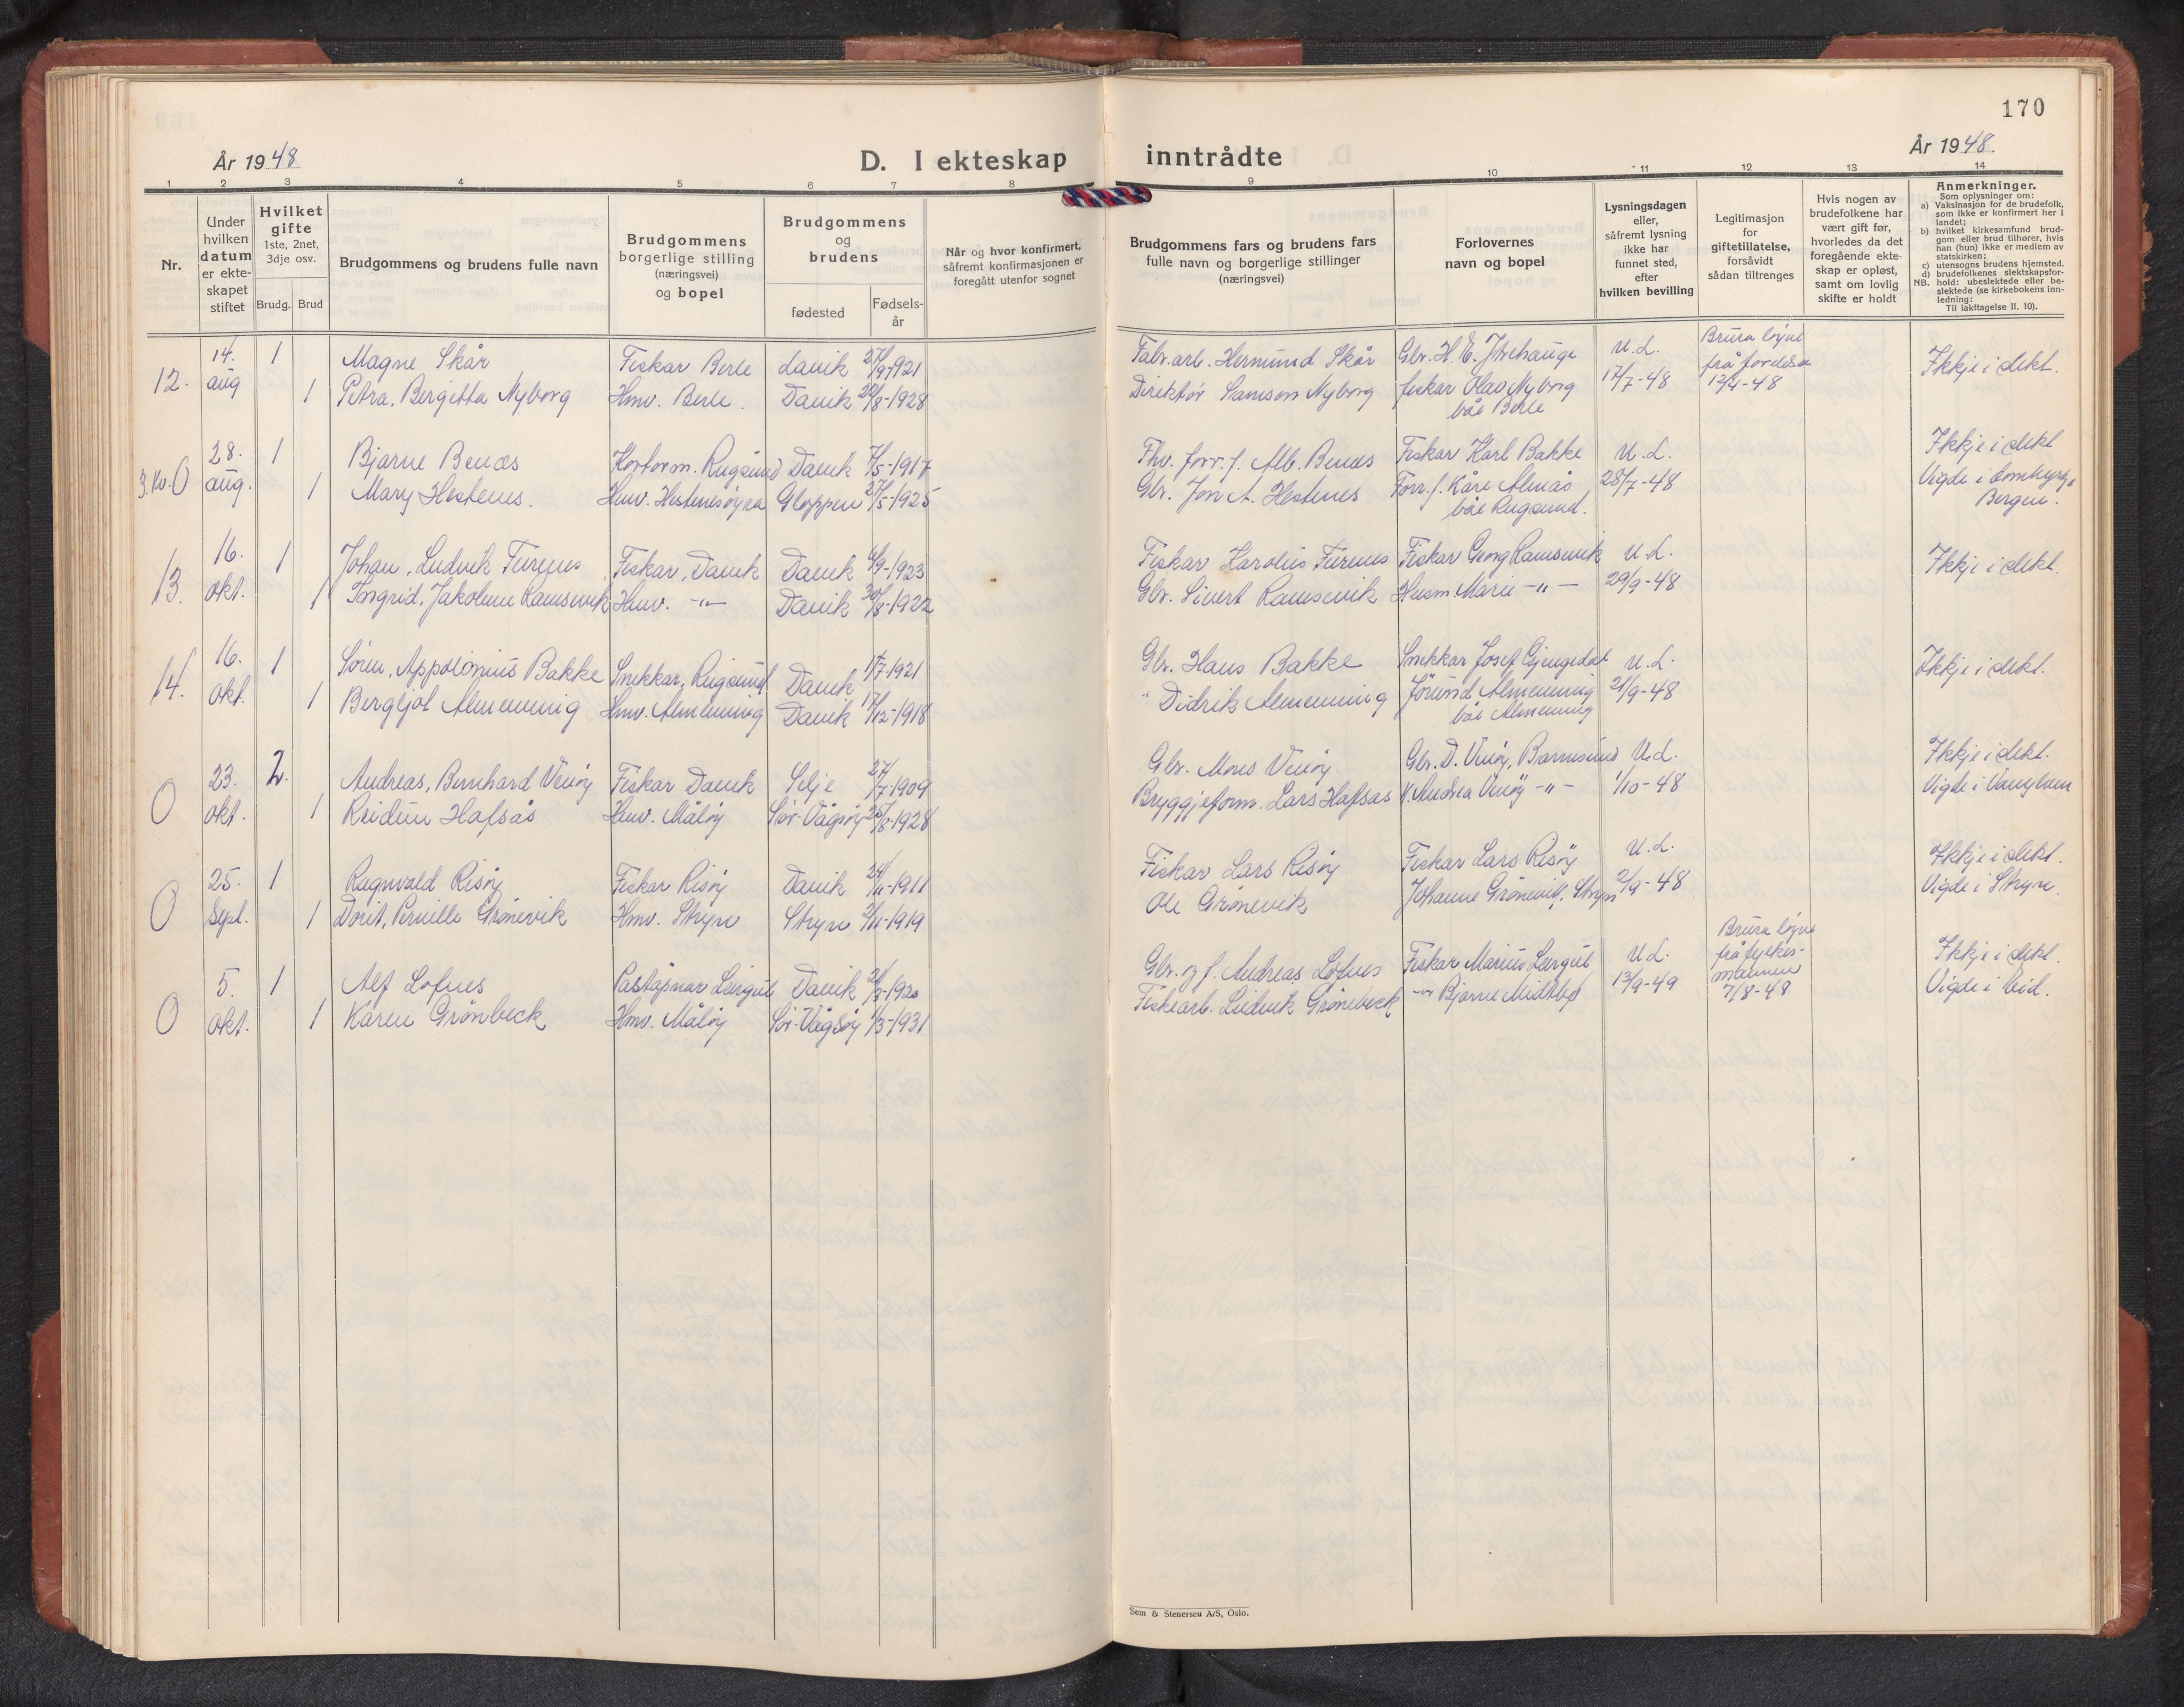 170
År 1948
D. I ekteskap inntrådte
År 1948
1 2 3 4 5 6 7 8 9 10 11 12 13 14
Nr.
Under
hvilken
datum
er ekte-
skapet
stiftet
Hvilket
gifte
1ste, 2net,
3dje osv.
Brudg. Brud
Brudgommens og brudens fulle navn
Brudgommens
borgerlige stilling
(næringsvei)
og bopel
Brudgommens
og
brudens
fødested
Fødsels-
år
Når og hvor konfirmert,
såfremt konfirmasjonen er
foregått utenfor sognet
Brudgommens fars og brudens fars
fulle navn og borgerlige stillinger
(næringsvei)
Forlovernes
navn og bopel
Lysningsdagen
eller,
såfremt lysning
ikke har
funnet sted,
efter
hvilken bevilling
Legitimasjon
for
giftetillatelse,
forsåvidt
sådan tiltrenges
Hvis nogen av
brudefolkene har
vært gift før,
hvorledes da det
foregående ekte-
skap er opløst,
samt om lovlig
skifte er holdt
Anmerkninger.
Som oplysninger om:
a) Vaksinasjon for de brudefolk,
som ikke er konfirmert her i
landet;
b) hvilket kirkesamfund brud-
gom eller brud tilhører, hvis
han (hun) ikke er medlem av
statskirken;
c) utensogns brudens hjemsted.
d) brudefolkenes slektskapsfor-
NB. hold: ubeslektede eller be-
slektede (se kirkebokens inn-
ledning:
Til iakttagelse II. 10).
12. 14. aug 1 Magne Skår Fiskar Berle Davik 27/9-1921 Fabr.arb. Hermund Skår Gbr. H. E. Ytrehauge U.L. Brura løyve Ikkje i slekt.
1 Petra, Bergitta Nyborg Hmv. Berle. Davik 22/8-1928 Direktør Samson Nyborg fiskar Olav Nyborg 17/7-48 frå foreldra
båe Berle 12/4-48
28. aug. 1 Bjarne Benæs Rugsund Davik 7/5-1917 Alb. Benæs Fiskar Karl Bakke U.L. Ikkje i slekt
1 Mary Hestenes. Hmv. Hestenesøyra Gloppen 27/5-1925 Gbr. Jon A. Hestenes Forr.f. Kåre Almås 28/7-48 Vigde i Domkyrkja
båe Rugsund. Bergen.
13. 16. okt. 1 Johan, Ludvik Furenes Fiskar, Davik Davik 4/9-1923 Fiskar Karolius Furenes Fiskar Georg Ramsevik U.L. Ikkje i slekt.
1 Ingrid, Jakobine Ramsevik Hmv. -"- Davik 30/8-1922 Gbr. Sivert Ramsevik Husm Marie -"- 29/9-48
14. 16. okt. 1 Søren, Appolonius Bakke Snekkar, Rugsund Davik 1/7-1921 Gbr. Hans Bakke Snekkar Josef Gjengedal U.L. Ikkje i slekt.
1 Bergljot Almenning Hmv. Almenning Davik 17/12-1918 " Didrik Almenning Jørund Almenning 21/9-48
båe Almenning
0 23. okt. 2. Andreas, Bernhard Venøy Fiskar Davik Selje 27/7-1909 Gbr. Mons Venøy Gbr. D. Venøy, Barmsund U.L. Ikkje i slekt.
1 Reidun Hafsås Hmv. Måløy Sør-Vågsøy 25/8-1928 Bryggjeform. Lars Hafsås Andrea Venøy -"- 1/10-48 Vigde i
0 25. Sept. 1 Ragnvald Risøy Fiskar Risøy Davik 24/11-1911 Fiskar Lars Risøy Fiskar Lars Risøy U.L. Ikkje i slekt.
1 Dorit, Pernille Grønevik Hmv. Stryn Stryn 2/11-1919 Ole Grønevik Johanne Grønevik, Stryn 2/9-48 Vigde i Stryn.
0 5. okt. 1 Alf Lofnes Davik 21/3-1920 Gbr. og f. Andreas Lofnes Fiskar Marius Lærgul U.L. Brura løyve Ikkje i slekt.
1 Karen Grønbeck Hmv. Måløy Sør-Vågsøy 1/3-1931 Fiskearb. Ludvik Grønebeck -"- Bjarne Midtbø 13/9-49 frå fylkes- Vigde i Eid.
mannen
7/8-48
Sem & Stenersen A/S, Oslo.